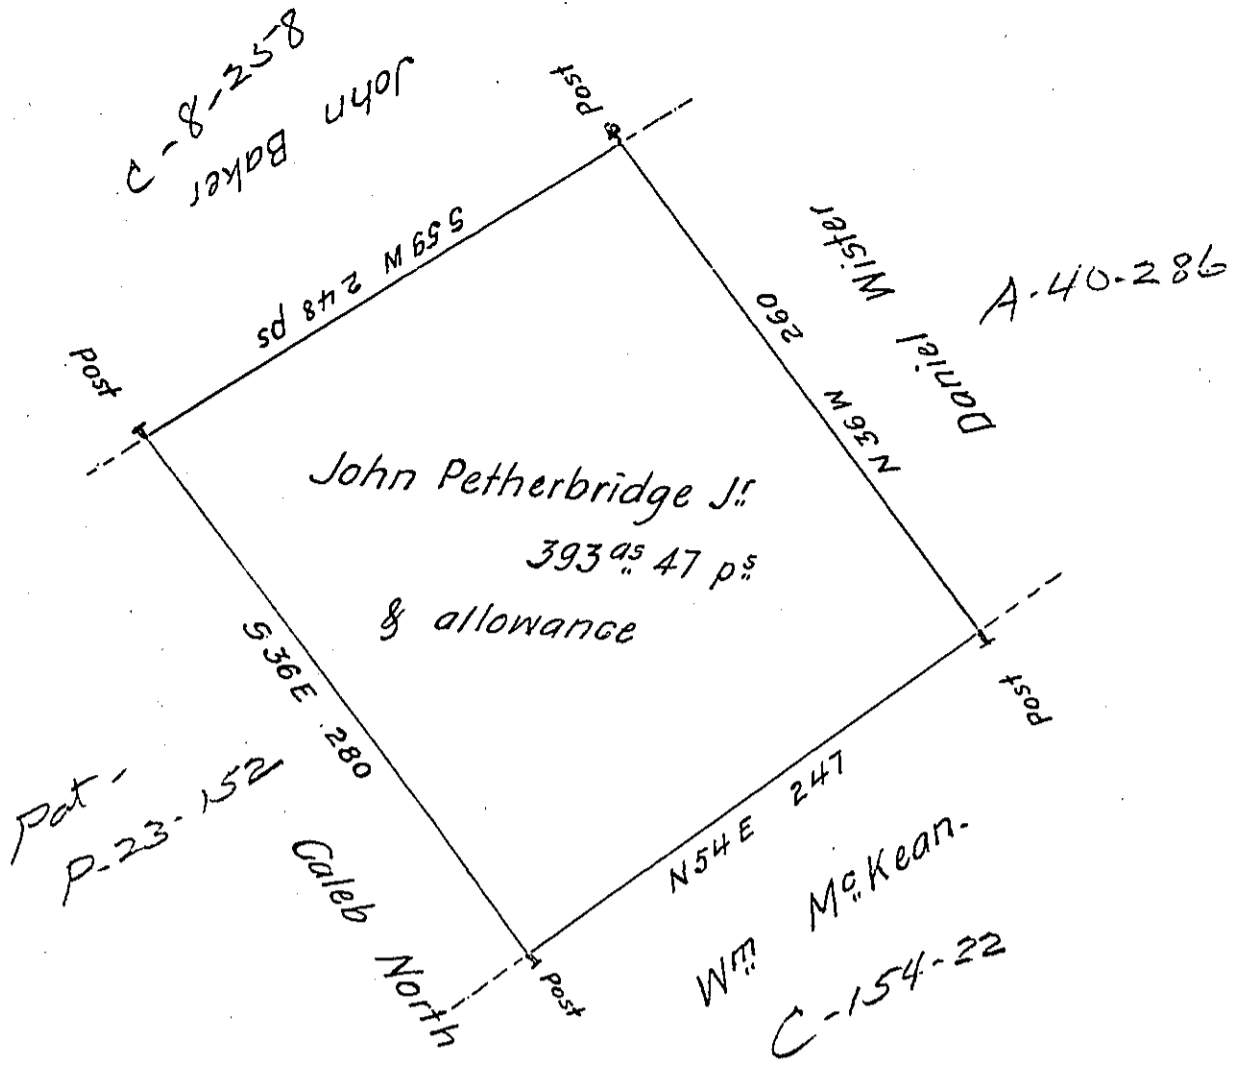 C-8-258
John Baker
Post
S59W 248 ps
Post
Daniel Wister
A-40-286
N36W 260
John Petherbridge Jr.
393 as 47 ps
& allowance
Post
S36E 280
N54E 247
Pat-
P-23-152
Caleb North
Post
Wm McKean.
C-154-22